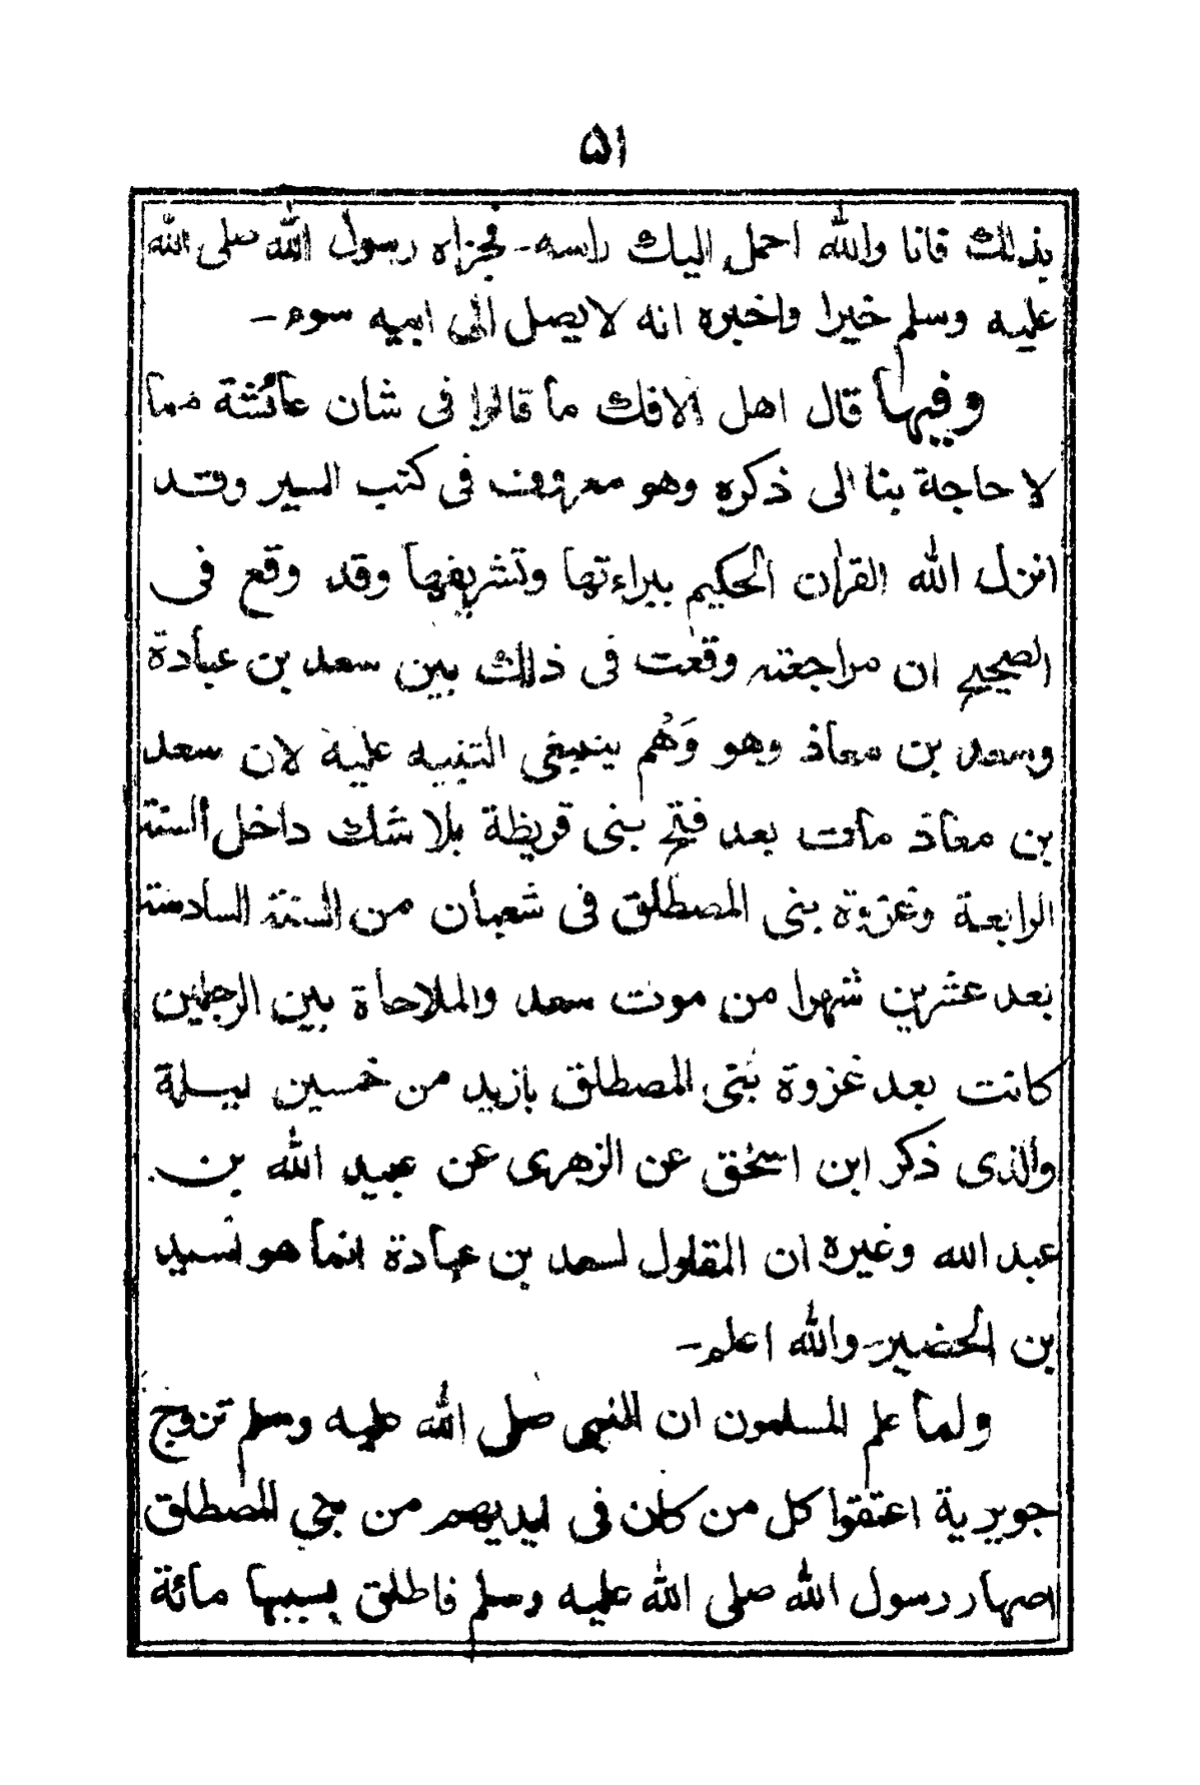 ۵۱
بذلك فانا والله احمل اليك راسه۔ فجزاه رسول الله صلى الله
عليه وسلم خيرا واخبره انه لا يصل الى ابيه سوء۔
وفيها قال اهل الافك ما قالوا فى شان عائشة مما
لا حاجة بنا الى ذكره وهو معروف فى كتب السير وقد
انزل الله القران الحكيم ببراءتها وتشريفها وقد وقع فى
الصحيح ان مراجعته وقعت فى ذلك بين سعد بن عبادة
وسعد بن معاذ وهو وَهُم ينبغى التنبيه عليه لان سعد
بن معاذ مات بعد فتح بنى قريظة بلا شك داخل السنة
الرابعة وغزوة بنى المصطلق فى شعبان من السنة السادسة
بعد عشرين شهرا من موت سعد والملاحاة بين الرجلين
كانت بعد غزوة بنى المصطلق بازيد من خمسين ليلة
والذى ذكر ابن اسحٰق عن الزهرى عن عبيد الله بن
عبد الله وغيره ان المقاول لسعد بن عبادة انما هو اسيد
بن الحضير۔ والله اعلم۔
ولما علم المسلمون ان النبى صلى الله عليه وسلم تزوج
جويرية اعتقوا كل من كان فى ايديهم من بنى المصطلق
اصهار رسول الله صلى الله عليه وسلم فاطلق بسببها مائة